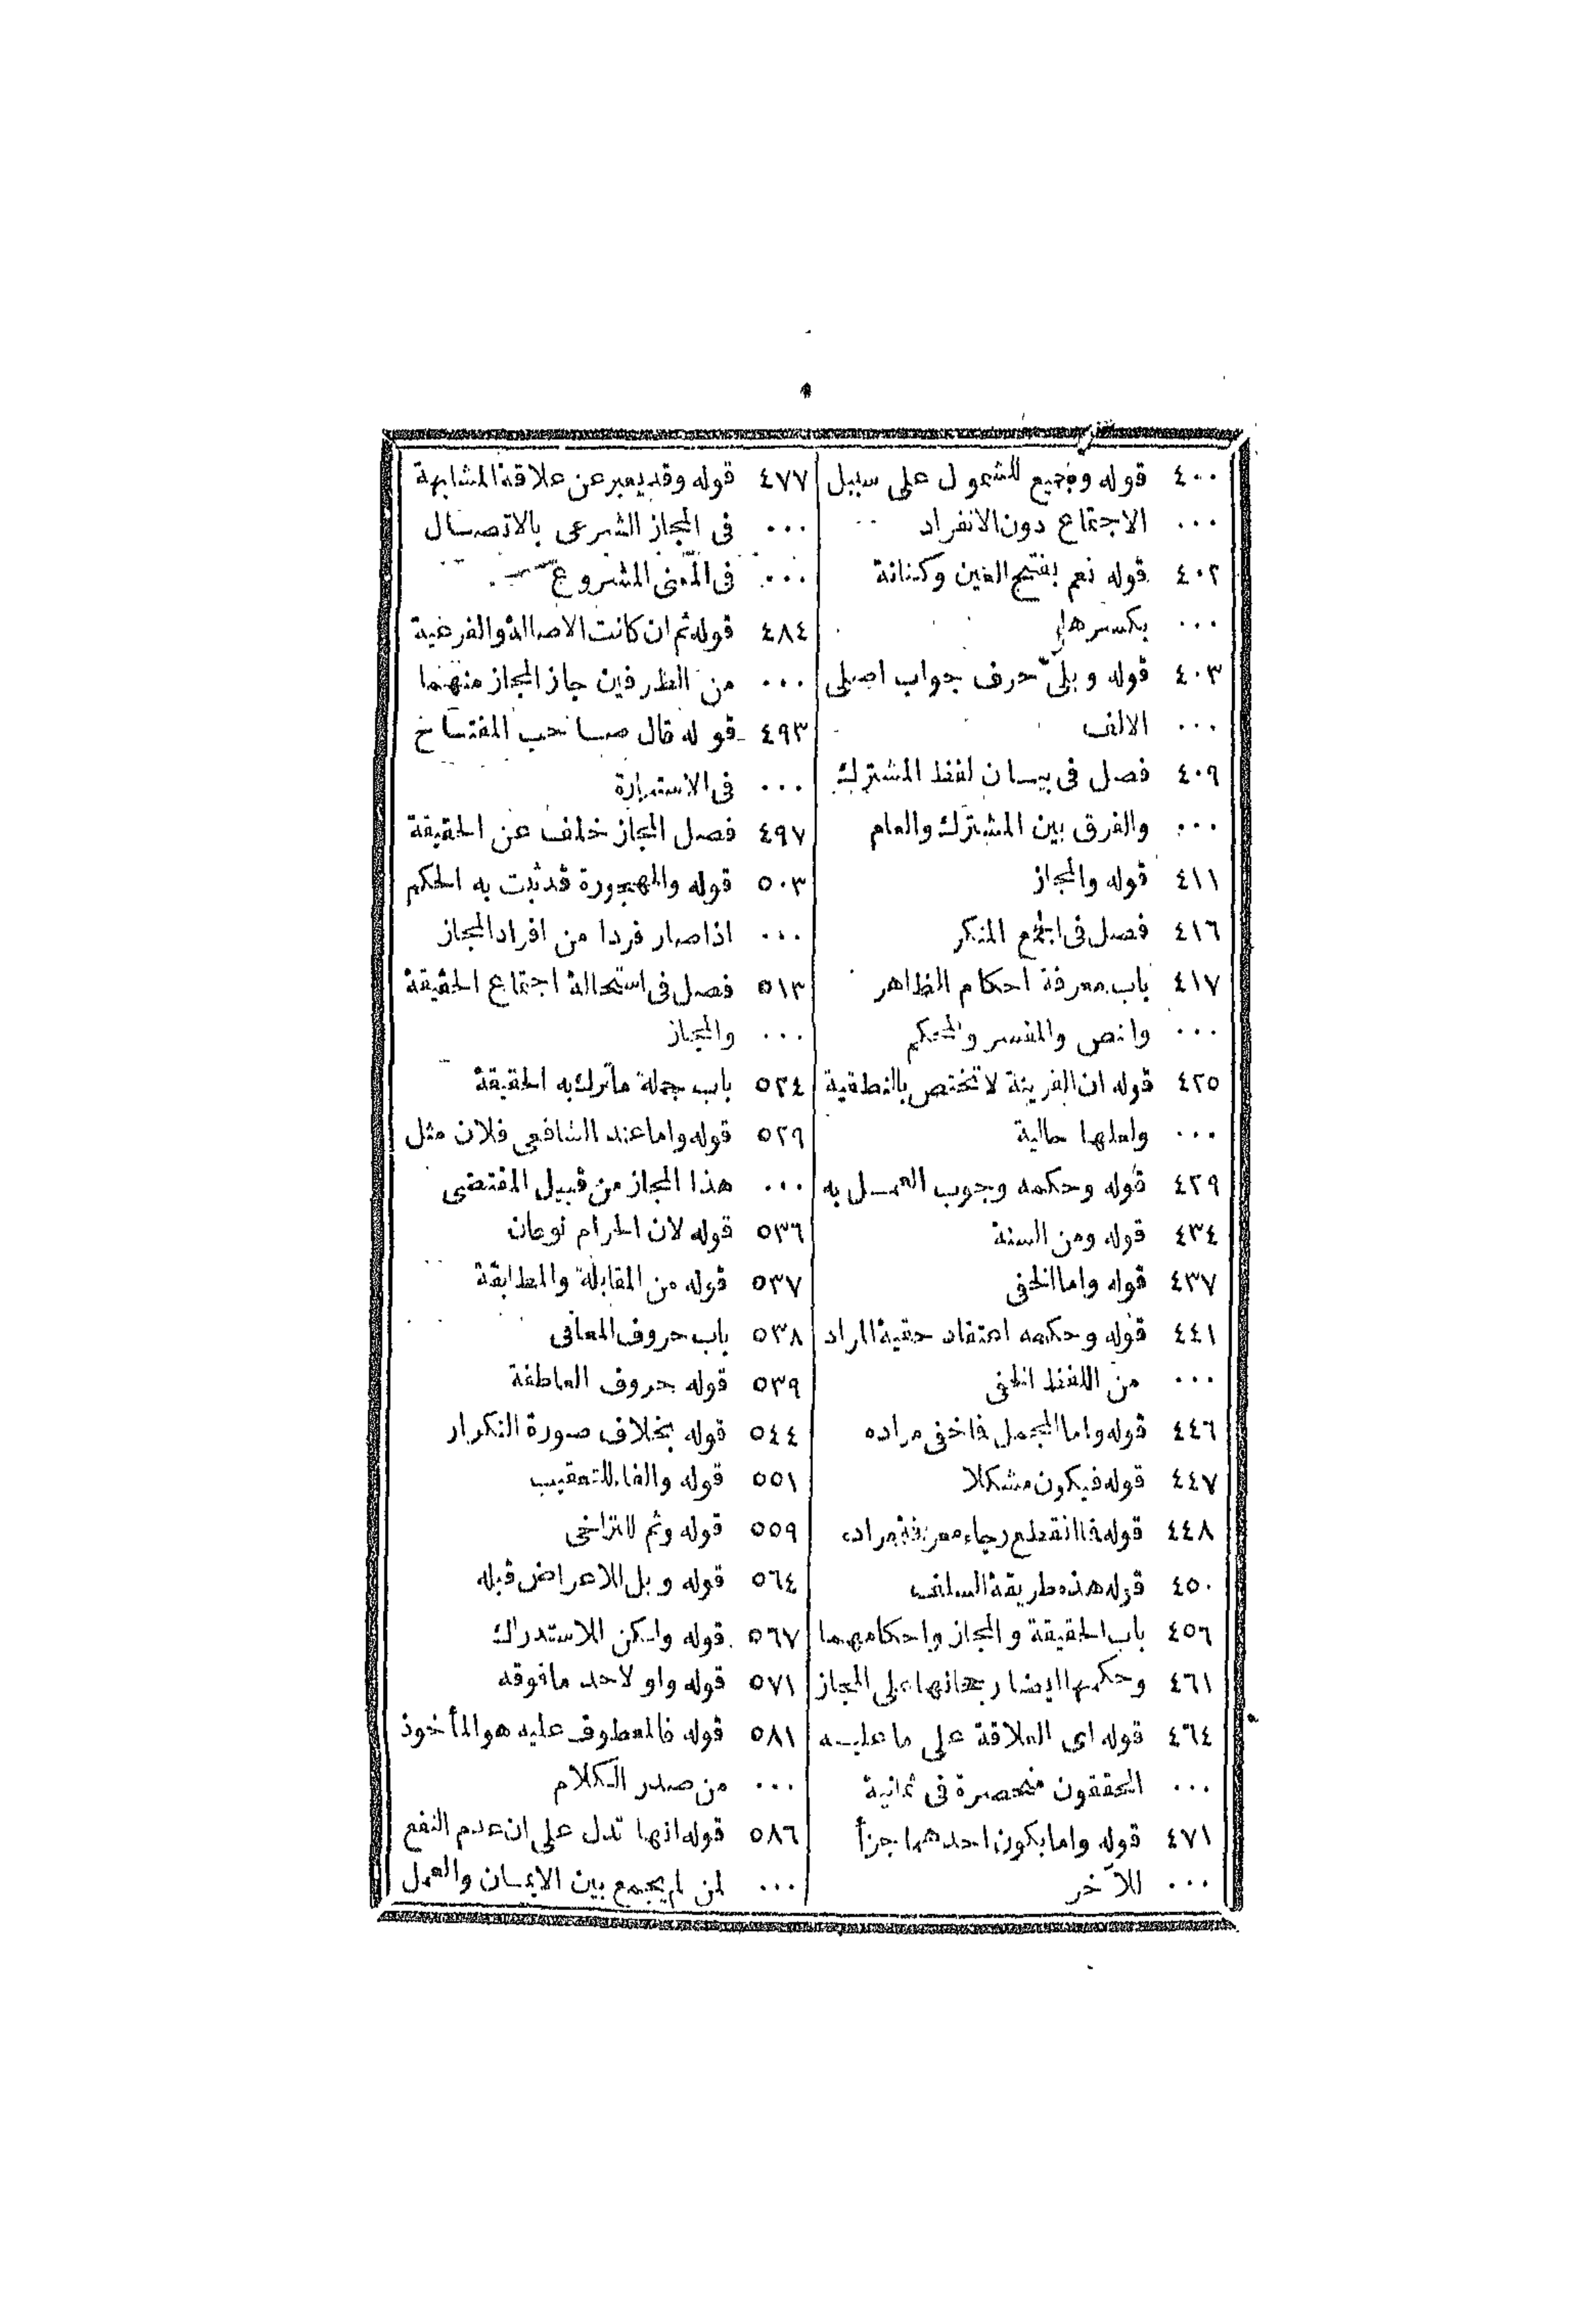 ٥
٤٠٠ قوله وجميع للشمول على سبيل
٠٠٠ الاجتماع دون الانفراد
٤٠٢ قوله نعم بفتح العين وكنانة
٠٠٠ بكسرها
٤٠٣ قوله وبلى حرف جواب اصلى
٠٠٠ الالف
٤٠٩ فصل فى بيان لفظ المشترك
٠٠٠ والفرق بين المشترك والعام
٤١١ قوله والمجاز
٤١٦ فصل فى الجمع المنكر
٤١٧ باب معرفة احكام الظاهر
٠٠٠ وانص والمفسر والمحكم
٤٢٥ قوله ان القرينة لا تختص بالنطقية
٠٠٠ ولعلها حالية
٤٢٩ قوله وحكمه وجوب العمل به
٤٣٤ قوله ومن السنة
٤٣٧ قوله واما الخفى
٤٤١ قوله وحكمه اعتقاد حقية المراد
٠٠٠ من اللفظ الخفى
٤٤٦ قوله واما المجمل فما خفى مراده
٤٤٧ قوله فيكون مشكلا
٤٤٨ قوله فما انقطع رجاء معرفة مراده
٤٥٠ قوله هذه طريقة السلف
٤٥٦ باب الحقيقة والمجاز واحكامهما
٤٦١ وحكمها ايضا رجحانها على المجاز
٤٦٤ قوله اى العلاقة على ما عليه
٠٠٠ المحققون منحصرة فى ثمانية
٤٧١ قوله واما بكون احدهما جزأ
٠٠٠ للآخر
٤٧٧ قوله وقد يعبر عن علاقة المشابهة
٠٠٠ فى المجاز الشرعى بالاتصال
٠٠٠ فى المعنى المشروع
٤٨٤ قوله ثم ان كانت الاصالة والفرعية
٠٠٠ من الطرفين جاز المجاز منهما
٤٩٣ قوله قال صاحب المفتاح
٠٠٠ فى الاستعارة
٤٩٧ فصل المجاز خلف عن الحقيقة
٥٠٣ قوله والمهجورة قد ثبت به الحكم
٠٠٠ اذا صار فردا من افراد المجاز
٥١٣ فصل فى استحالة اجتماع الحقيقة
٠٠٠ والمجاز
٥٢٤ باب جملة ما ترك به الحقيقة
٥٢٩ قوله واما عند الشافعى فلان مثل
٠٠٠ هذا المجاز من قبيل المقتضى
٥٣٦ قوله لان الحرام نوعان
٥٣٧ قوله من المقابلة والمطابقة
٥٣٨ باب حروف المعانى
٥٣٩ قوله حروف العاطفة
٥٤٤ قوله بخلاف صورة التكرار
٥٥١ قوله والفاء للتعقيب
٥٥٩ قوله وثم للتراخى
٥٦٤ قوله وبل للاعراض قبله
٥٦٧ قوله ولكن للاستدراك
٥٧١ قوله واو لاحد ما فوقه
٥٨١ قوله فالمعطوف عليه هو المأخوذ
٠٠٠ من صدر الكلام
٥٨٦ قوله انها تدل على ان عدم النفع
٠٠٠ لمن لم يجمع بين الايمان والعمل